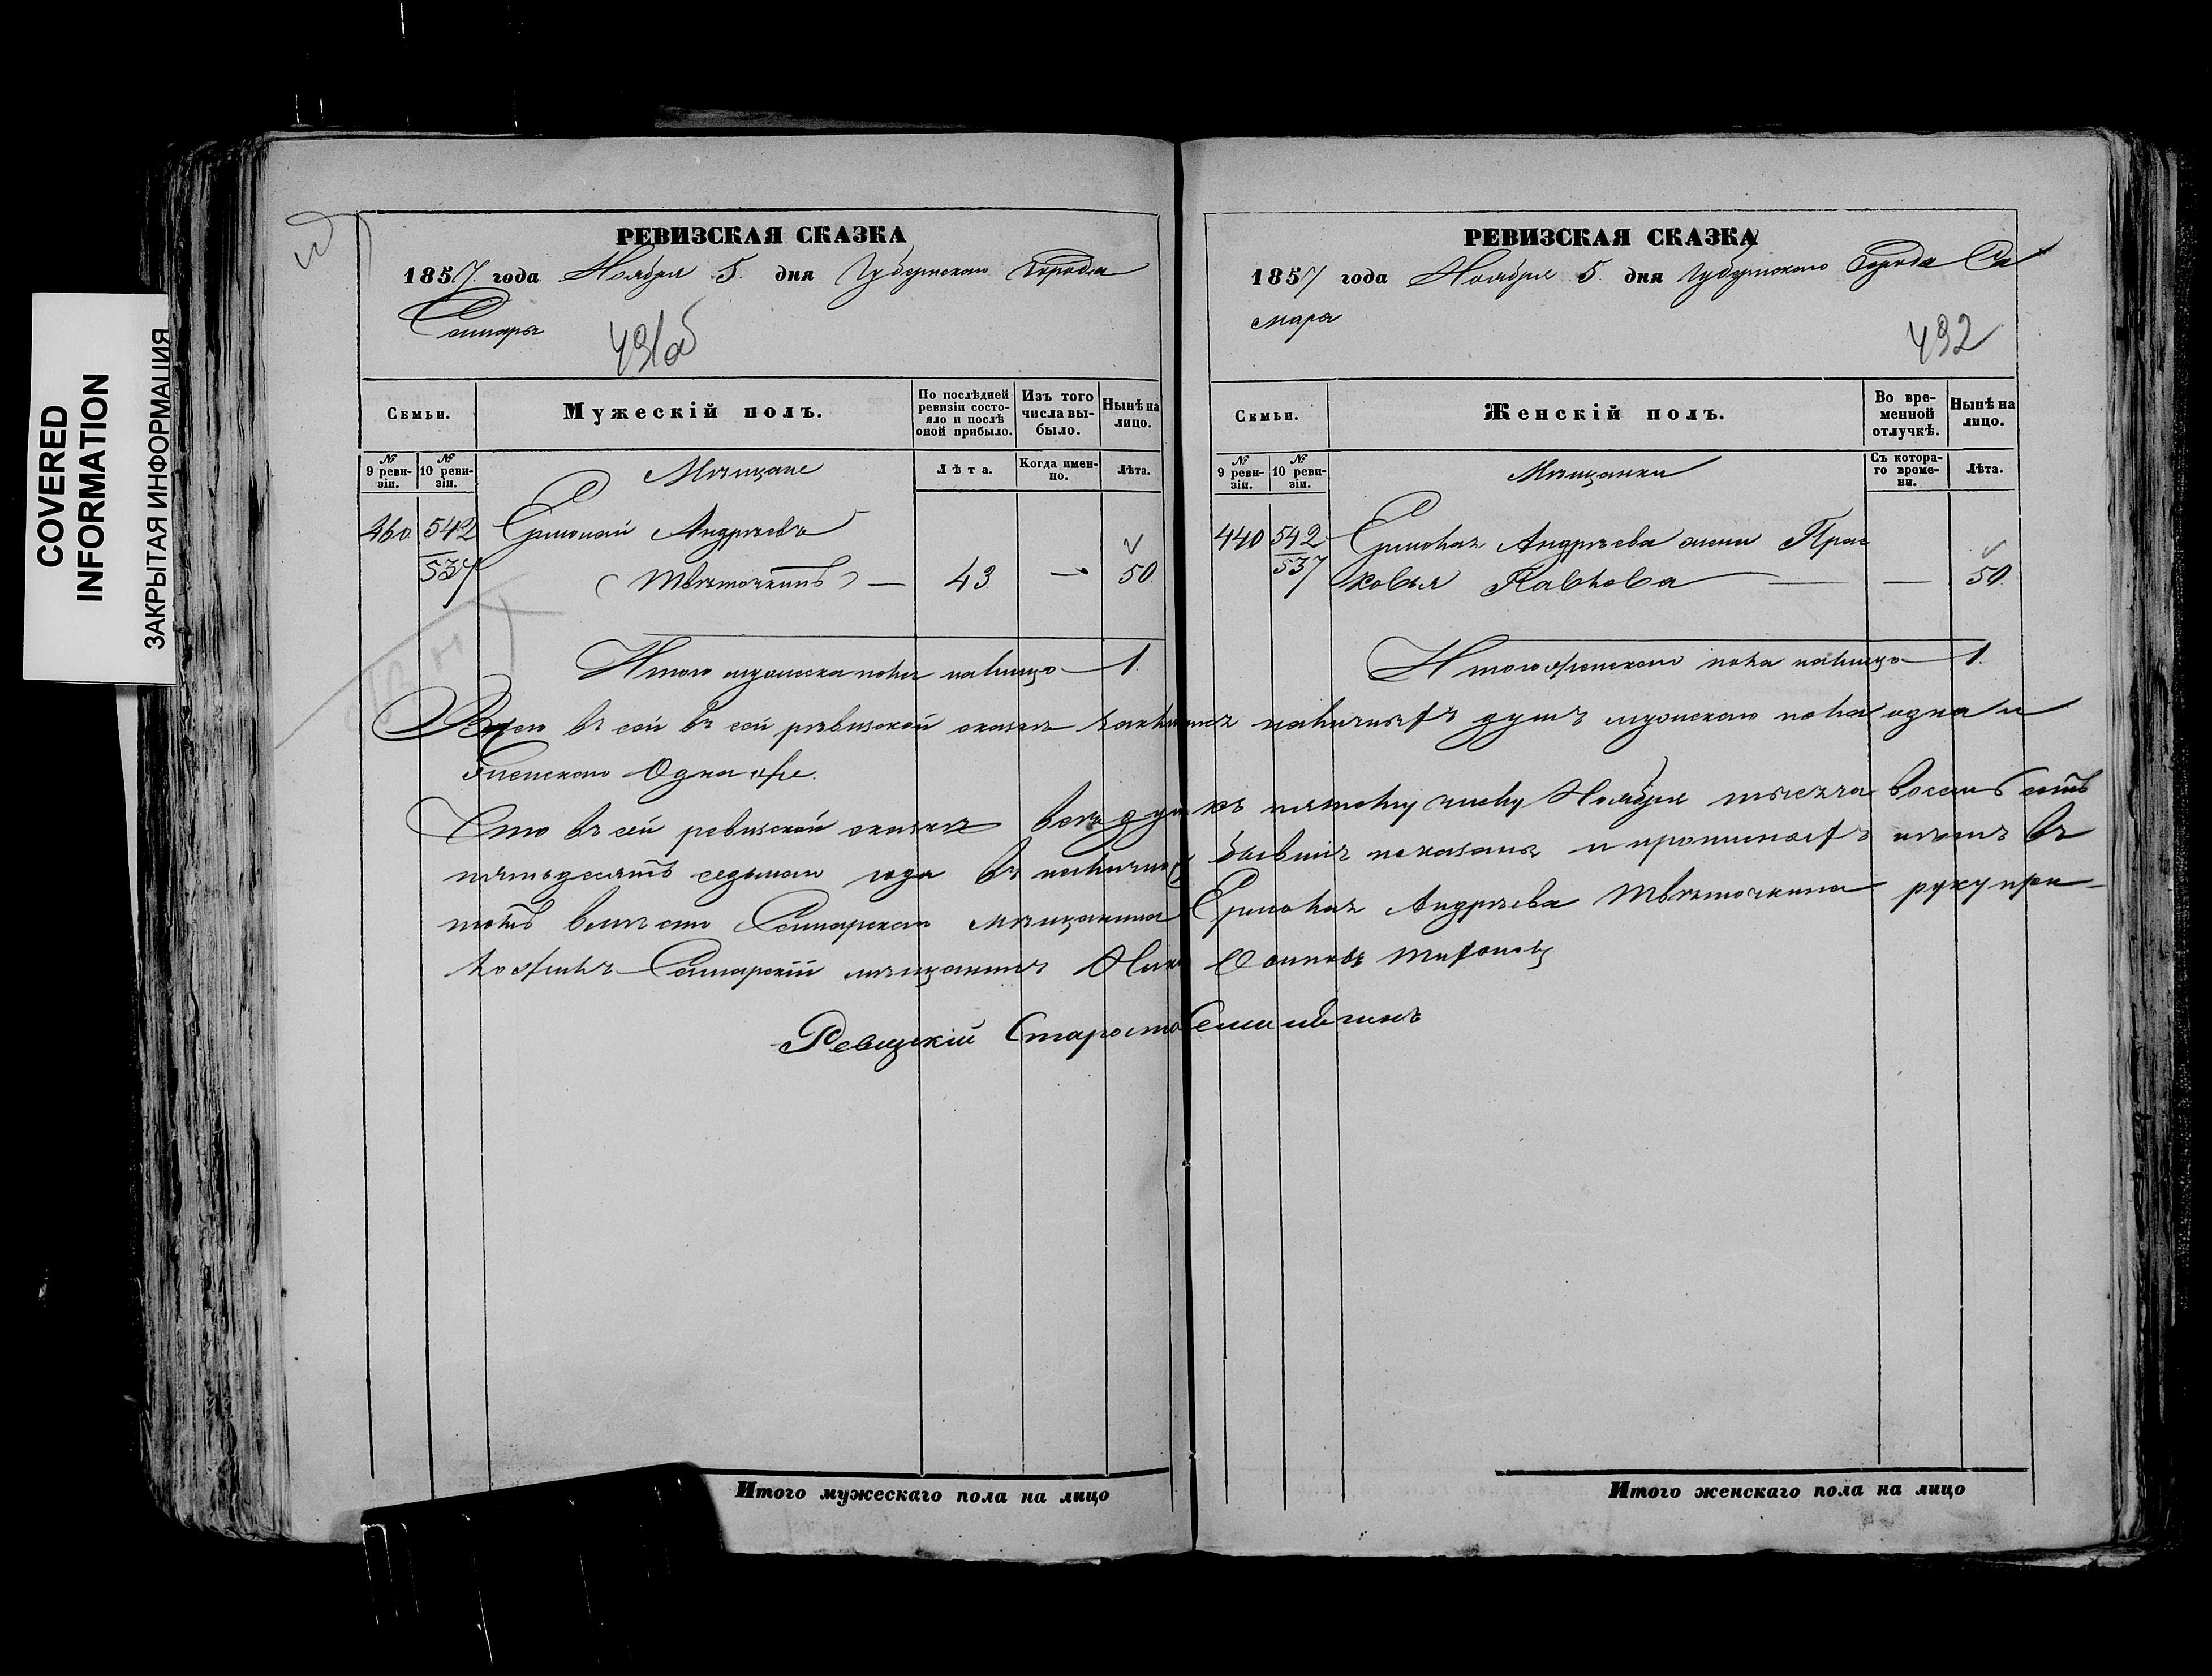 COVERED
INFORMATION
ЗАКРЫТАЯ ИНФОРМАЦИЯ
РЕВИЗСКАЯ СКАЗКА
1857 года Ноября 5 дня Губернскаго Города
Самары
491об
Семьи.
Мужескій полъ.
По послѣдней ревизіи состояло и послѣ оной прибыло.
Изъ того числа выбыло.
Нынѣ на лицо.
№ 9 ревизіи.
№ 10 ревизіи.
Мѣщане
Лѣта.
Когда именно.
Лѣта.
460 542 Ермолай Андреевъ
537 (Твѣточкинъ) — 43 — 50
Итого мужеска пола налицо — 1.
РЕВИЗСКАЯ СКАЗКА
1857 года Ноября 5 дня Губернскаго Города Са
мара
492
Семьи.
Женскій полъ.
Во временной отлучкѣ.
Нынѣ на лицо.
№ 9 ревизіи.
№ 10 ревизіи.
Мѣщанки
Съ котораго времени.
Лѣта.
440 542 Ермолая Андреева жена Прас
537 ковья Павлова — — 50.
Итого женскаго пола налицо — 1.
Всего въ сей въ сей ревизской сказкѣ наличныхъ душъ мужскаго пола одна и
Женскаго Одна же.
Что въ сей ревизской сказкѣ всѣ души къ пятому числу Ноября тысяча восемь сотъ
пятьдесятъ седьмаго года въ наличности бывшія показаны и прописныхъ нѣтъ въ
томъ вмѣсто Самарскаго мѣщанина Ермолая Андреева Твѣточкина руку при-
ложилъ Самарскій мѣщанинъ Осиповъ
Ревизскій Староста
Итого мужескаго пола на лицо
Итого женскаго пола на лицо